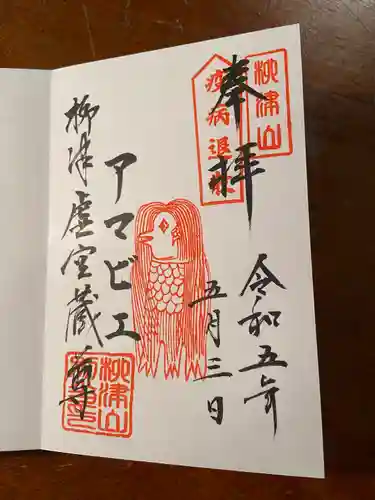 奉拝
柳津山
疫病退散
令和五年
五月三日
アマビエ
柳津虚空蔵尊
柳津山